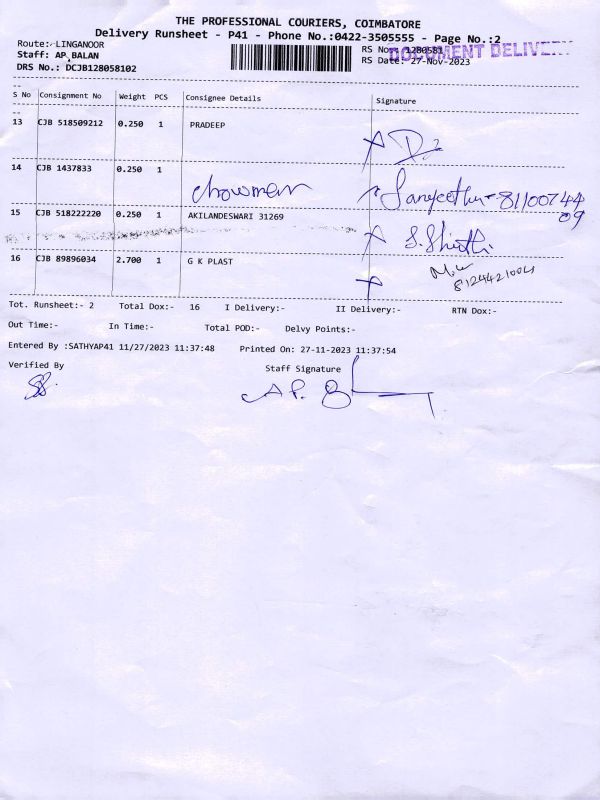 THE PROFESSIONAL COURIERS, COIMBATORE
Delivery Runsheet - P41 - Phone No.:0422-3505555 - Page No.:2
Route:-LINGANOOR
RS No.: 1280581
DOCUMENT DELIVE
Staff: AP,BALAN
RS Date: 27-Nov-2023
DRS No.: DCJB128058102
S No Consignment No Weight PCS Consignee Details Signature
13 CJB 518509212 0.250 1 PRADEEP
14 CJB 1437833 0.250 1
chowmen Sangeetha - 81100744
09
15 CJB 518222220 0.250 1 AKILANDESWARI 31269
S. Shruthi
16 CJB 89896034 2.700 1 G K PLAST
8124421004
Tot. Runsheet:- 2 Total Dox:- 16 I Delivery:- II Delivery:- RTN Dox:-
Out Time:- In Time:- Total POD:- Delvy Points:-
Entered By :SATHYAP41 11/27/2023 11:37:48 Printed On: 27-11-2023 11:37:54
Verified By Staff Signature
A P. B